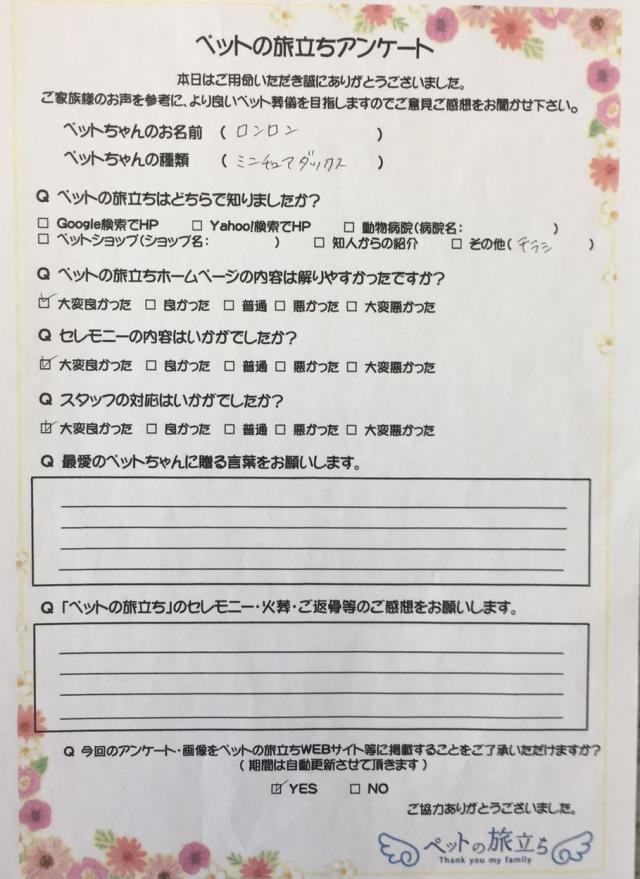 ペットの旅立ちアンケート
本日はご用命いただき誠にありがとうございました。
ご家族様のお声を参考に、より良いペット葬儀を目指しますのでご意見ご感想をお聞かせ下さい。
ペットちゃんのお名前 ( ロンロン )
ペットちゃんの種類 ( ミニチュアダックス )
Q ペットの旅立ちはどちらで知りましたか?
□ Google検索でHP □ Yahoo!検索でHP □ 動物病院(病院名: )
□ ペットショップ(ショップ名: ) □ 知人からの紹介 □ その他( チラシ )
Q ペットの旅立ちホームページの内容は解りやすかったですか?
☑ 大変良かった □ 良かった □ 普通 □ 悪かった □ 大変悪かった
Q セレモニーの内容はいかがでしたか?
☑ 大変良かった □ 良かった □ 普通 □ 悪かった □ 大変悪かった
Q スタッフの対応はいかがでしたか?
☑ 大変良かった □ 良かった □ 普通 □ 悪かった □ 大変悪かった
Q 最愛のペットちゃんに贈る言葉をお願いします。
Q 「ペットの旅立ち」のセレモニー・火葬・ご返骨等のご感想をお願いします。
Q 今回のアンケート・画像をペットの旅立ちWEBサイト等に掲載することをご了承いただけますか?
( 期間は自動更新させて頂きます )
☑ YES □ NO
ご協力ありがとうございました。
ペットの旅立ち
Thank you my family